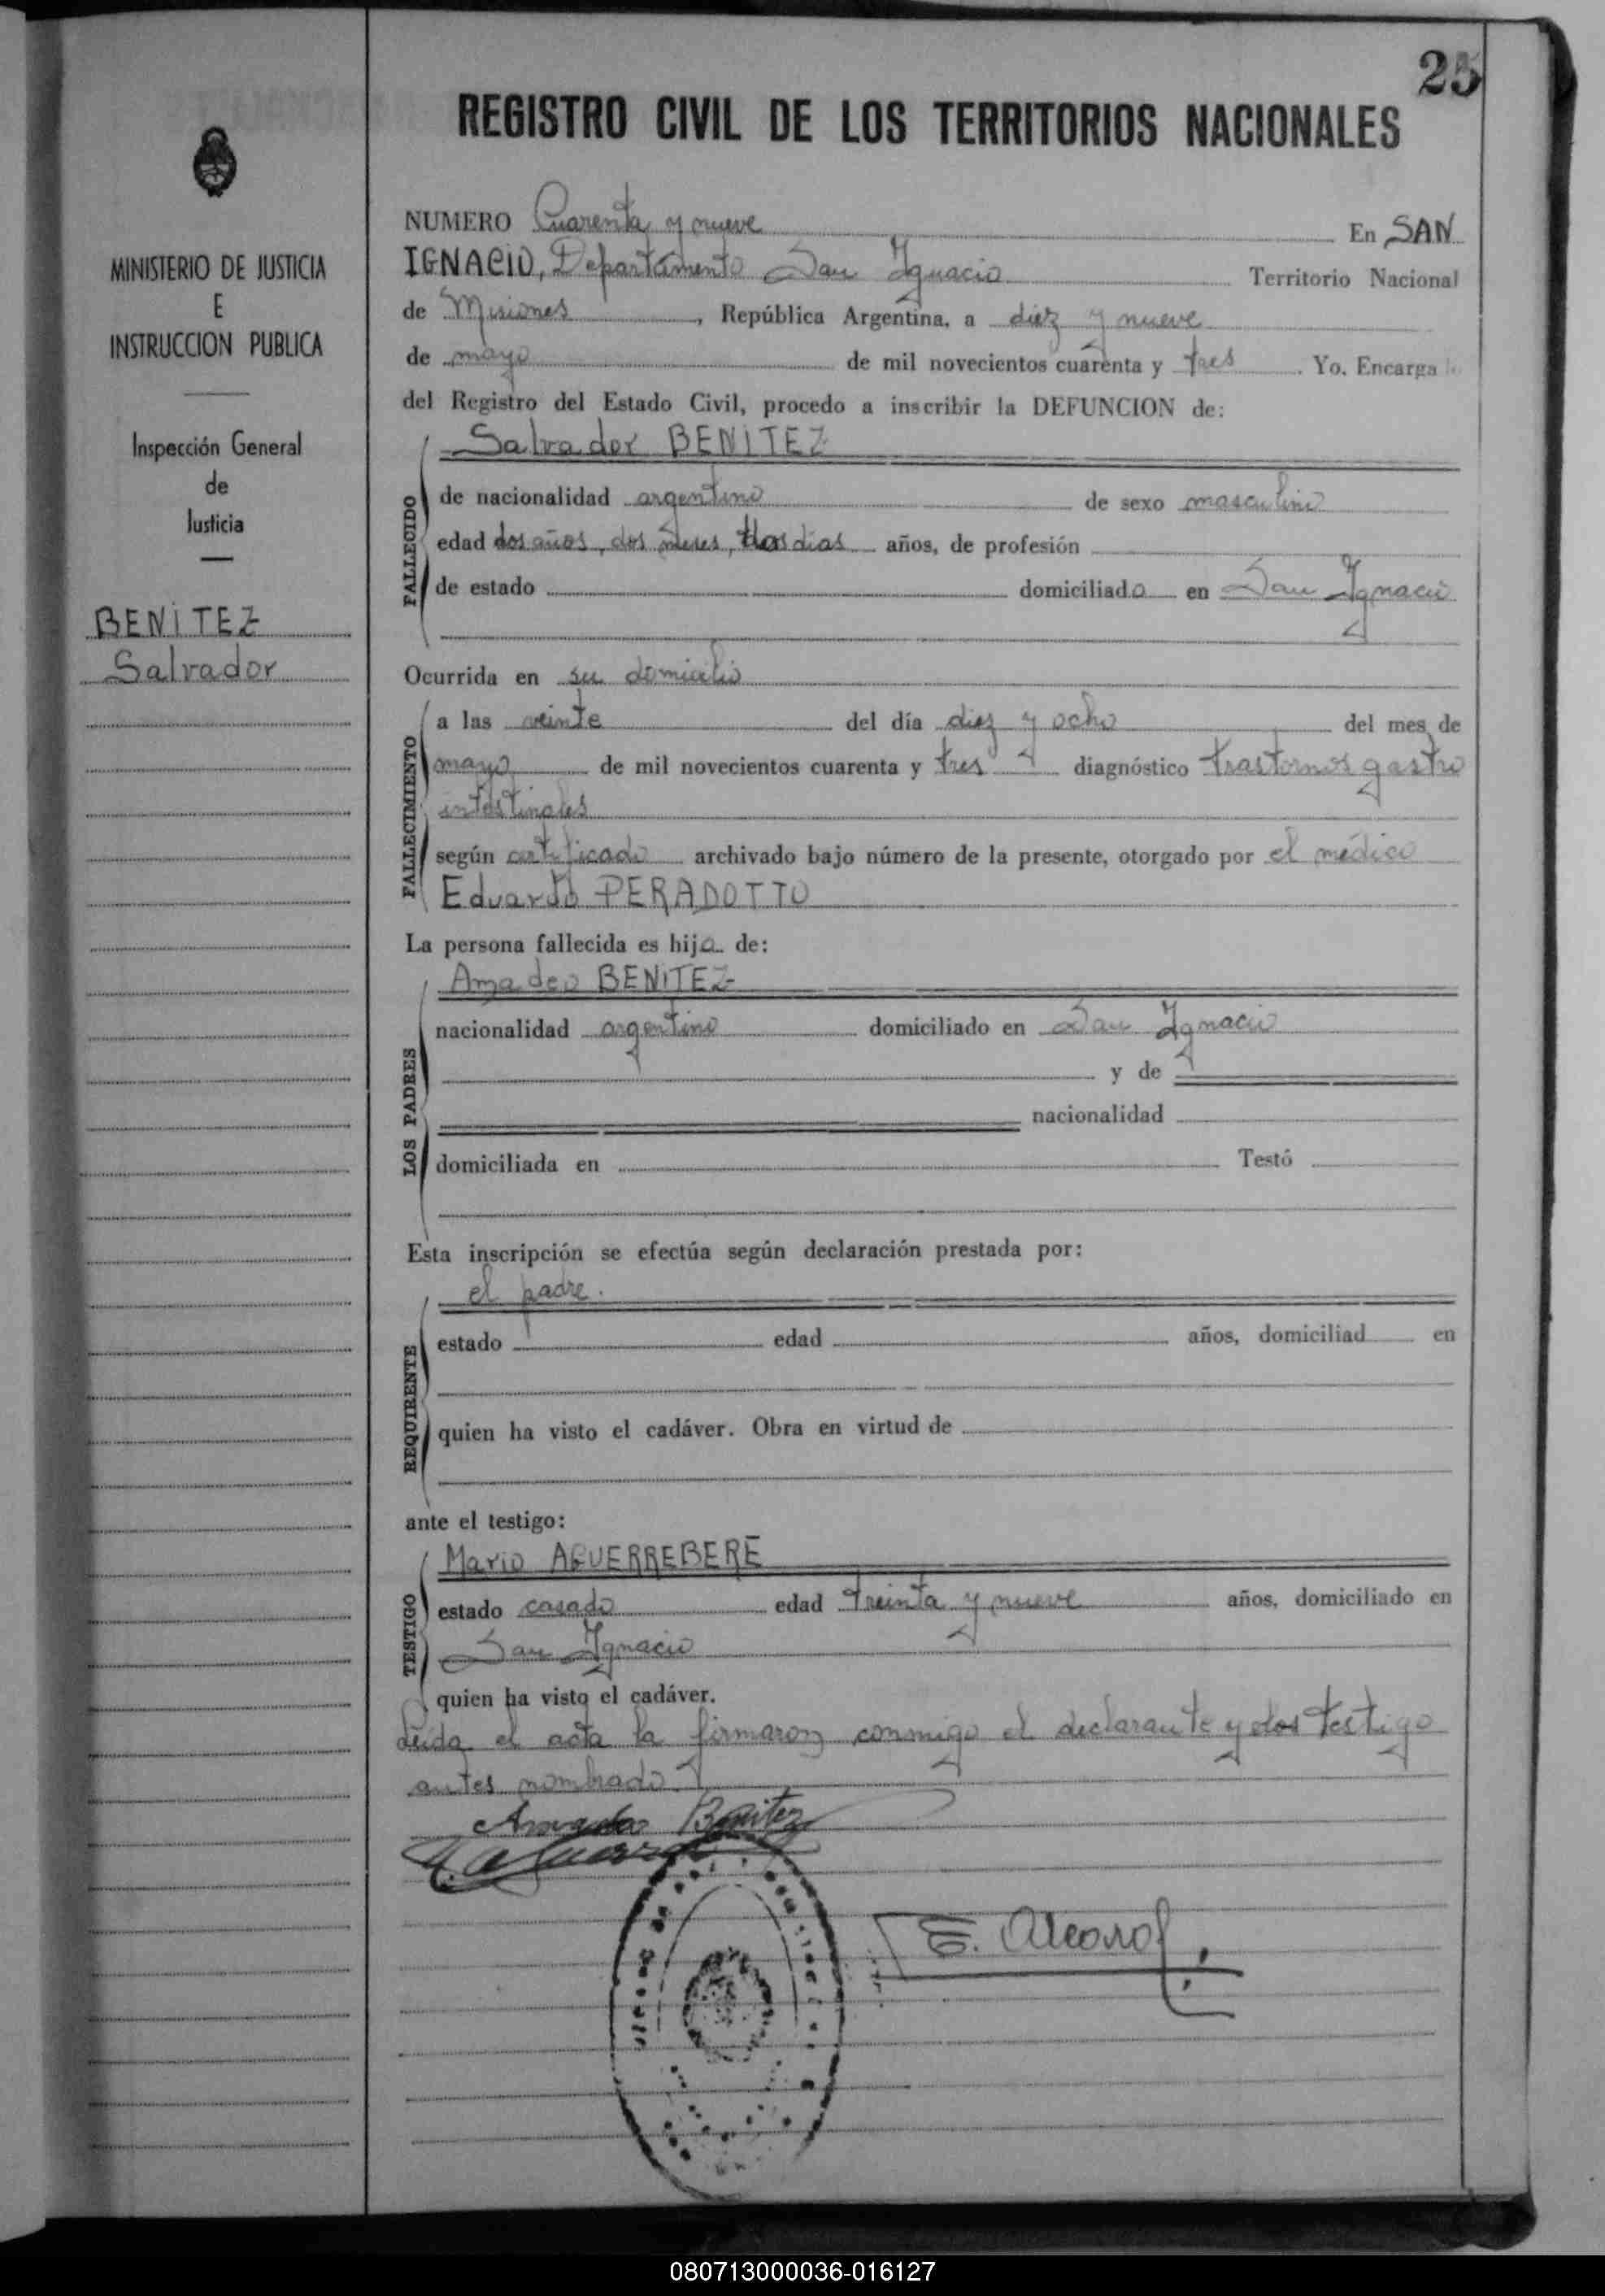 25
REGISTRO CIVIL DE LOS TERRITORIOS NACIONALES
MINISTERIO DE JUSTICIA
E
INSTRUCCION PUBLICA
Inspección General
de
Justicia
BENITEZ
Salvador
NUMERO Cuarenta y nueve En SAN
IGNACIO, Departamento San Ignacio Territorio Nacional
de Misiones, República Argentina, a diez y nueve
de mayo de mil novecientos cuarenta y tres. Yo, Encarga
del Registro del Estado Civil, procedo a inscribir la DEFUNCION de:
FALLECIDO
Salvador BENITEZ
de nacionalidad argentino de sexo masculino
edad dos años, dos meses, dos dias años, de profesión
de estado domiciliado en San Ignacio
Ocurrida en su domicilio
FALLECIMIENTO
a las veinte del día diez y ocho del mes de
mayo de mil novecientos cuarenta y tres diagnóstico trastornos gastro
intestinales
según certificado archivado bajo número de la presente, otorgado por el médico
Eduardo PERADOTTO
La persona fallecida es hijo de:
LOS PADRES
Amadeo BENITEZ
nacionalidad argentino domiciliado en San Ignacio
y de
nacionalidad
domiciliada en Testó
Esta inscripción se efectúa según declaración prestada por:
REQUIRENTE
el padre.
estado edad años, domiciliad en
quien ha visto el cadáver. Obra en virtud de
ante el testigo:
TESTIGO
Mario AGUERREBERE
estado casado edad treinta y nueve años, domiciliado en
San Ignacio
quien ha visto el cadáver.
Leída el acta la firmaron conmigo el declarante y testigo
antes nombrado
Amadeo Benitez
080713000036-016127